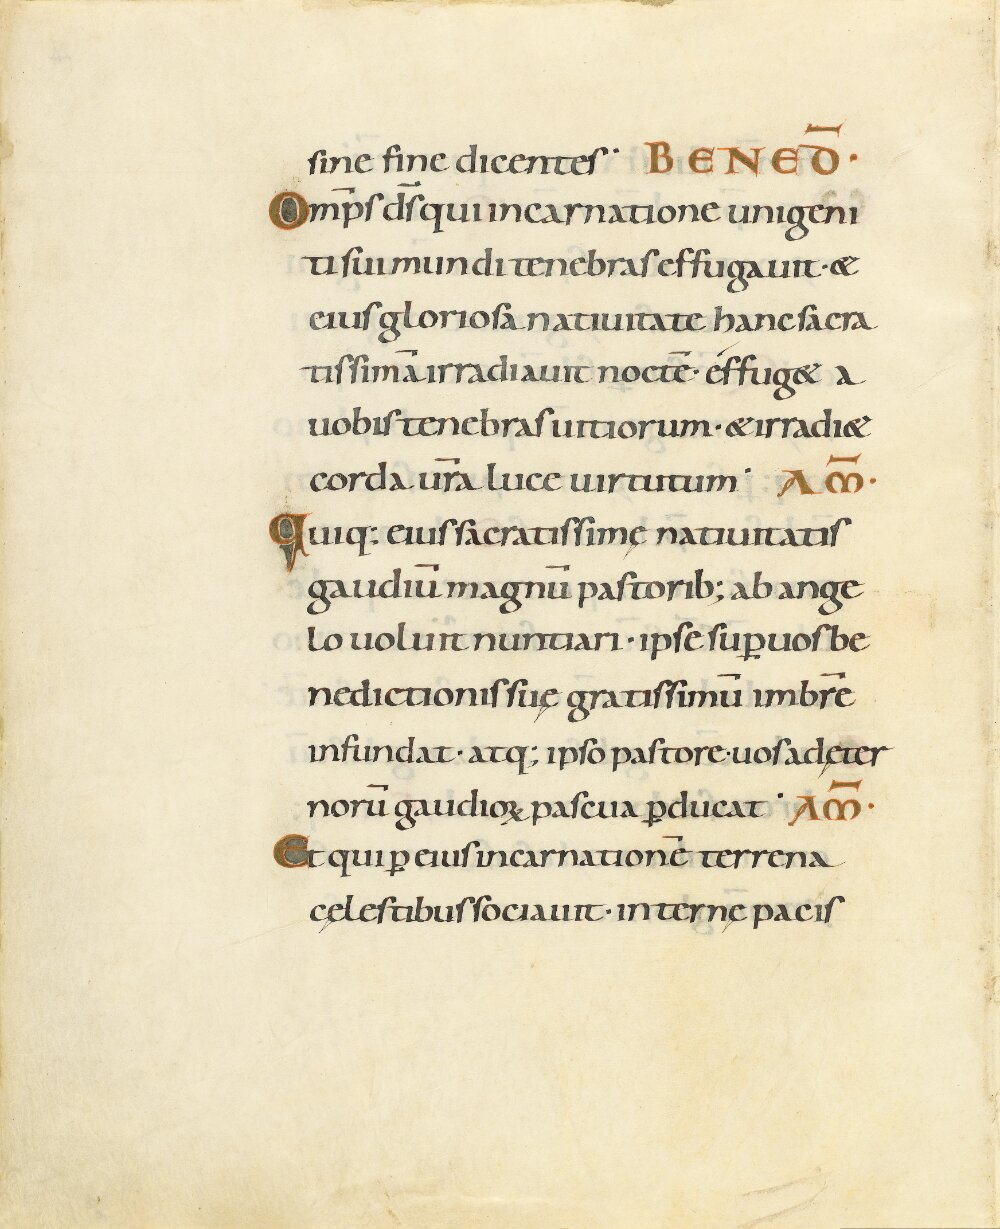 sine fine dicentes· BENED̄·
Om̄ps d̄s qui incarnatione unigeni
ti sui mundi tenebras effugauit· &
eius gloriosa natiuitate hanc sacra
tissimā irradiauit noctē· effug& a
uobis tenebras uitiorum· & irradi&
corda ur̄a luce uirtutum· AM̄·
Quiq: eius sacratissimę natiuitatis
gaudiū magnū pastorib; ab ange
lo uoluit nuntiari· ipse suꝑ uos be
nedictionis suę gratissimū imbrē
infundat· atq; ipso pastore· uos ad ęter
norū gaudioꝝ pascua ꝑducat· AM̄·
Et qui ꝑ eius incarnationē terrena
cęlestibus sociauit· internę pacis